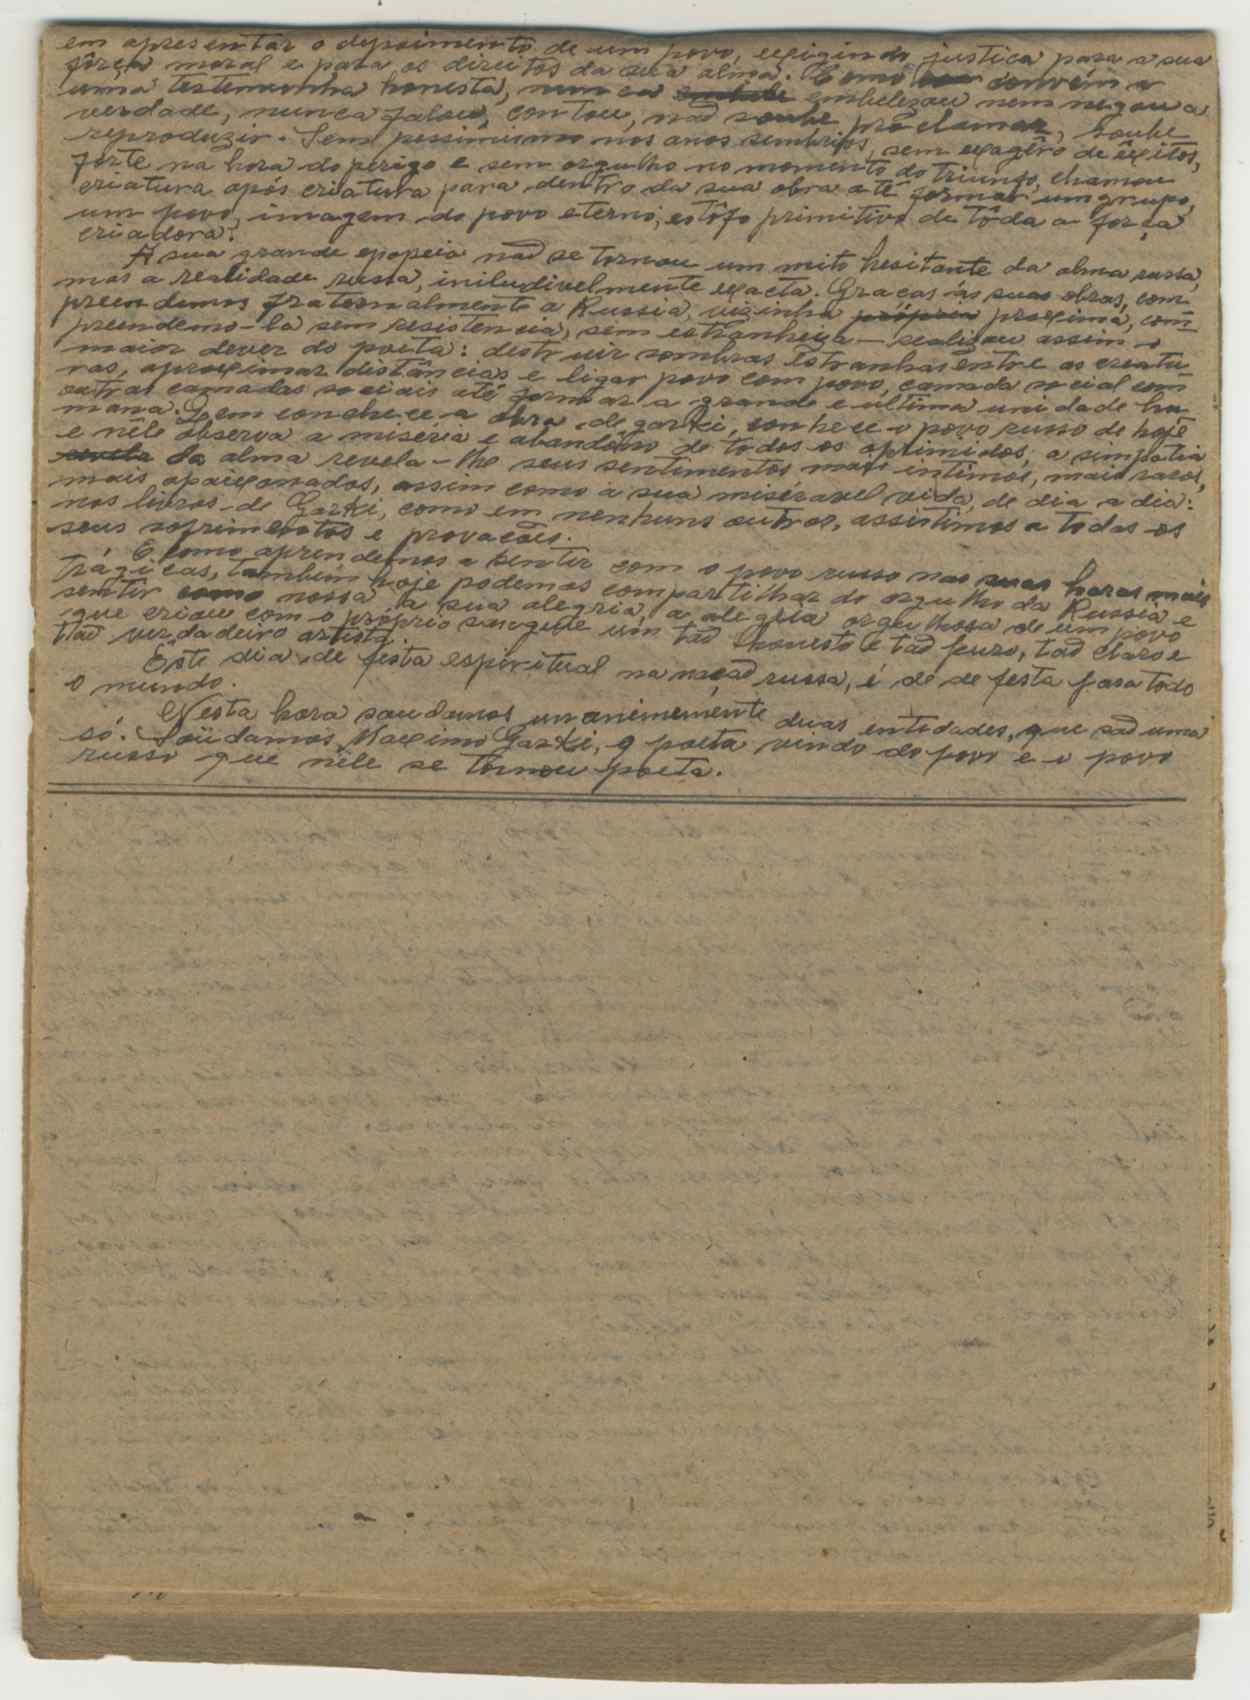 em apresentar o depoimento de um povo, exigindo justiça para a sua
fôrça moral e para os direitos da sua alma. Como convém a
uma testemunha honesta, nunca embelezou nem negou a
verdade, nunca falou, contou, não soube proclamar, soube
reproduzir. Sem pessimismo nos anos sombrios, sem exagêro de êxitos,
forte na hora do perigo e sem orgulho no momento do triunfo, chamou
criatura após criatura para dentro da sua obra até formar um grupo,
um povo, imagem do povo eterno, estôfo primitivo de tôda a fôrça
criadora.
A sua grande epopeia não se tornou um mito hesitante da alma russa,
mas a realidade russa, iniludivelmente exacta. Graças às suas obras, com-
preendemos fraternalmente a Russia, vizinha proxima, com-
preendemo-la sem resistencia, sem estranheza — realizou assim o
maior dever do poeta: destruir sombras estranhas entre as creatu-
ras, aproximar distâncias e ligar povo com povo, camada social com
outras camadas sociais até formar a grande e ultima unidade hu-
mana. Quem conhece a obra de Gorki, conhece o povo russo de hoje
e nêle observa a miséria e abandôno de todos os oprimidos, a simpatia
da alma revela-lhe seus sentimentos mais intimos, mais raros,
mais apaixonados, assim como a sua misérável vida, de dia a dia:
nos livros de Gorki, como em nenhuns outros, assistimos a todas os
seus sofrimentos e provações.
E como aprendemos a sentir com o povo russo nas suas horas mais
trágicas, também hoje podemos compartilhar do orgulho da Russia e
sentir como nossa a sua alegria, a alegria orgulhosa de um povo
que criou com o próprio sangue um tão honesto e tão puro, tão claro e
tão verdadeiro artista.
Êste dia de festa espiritual na nação russa, é de de festa para todo
o mundo.
Nesta hora saudamos unanimemente duas entidades, que são uma
só. Saüdamos Maximo Gorki, o poeta vindo do povo e o povo
russo que nêle se tornou poeta.